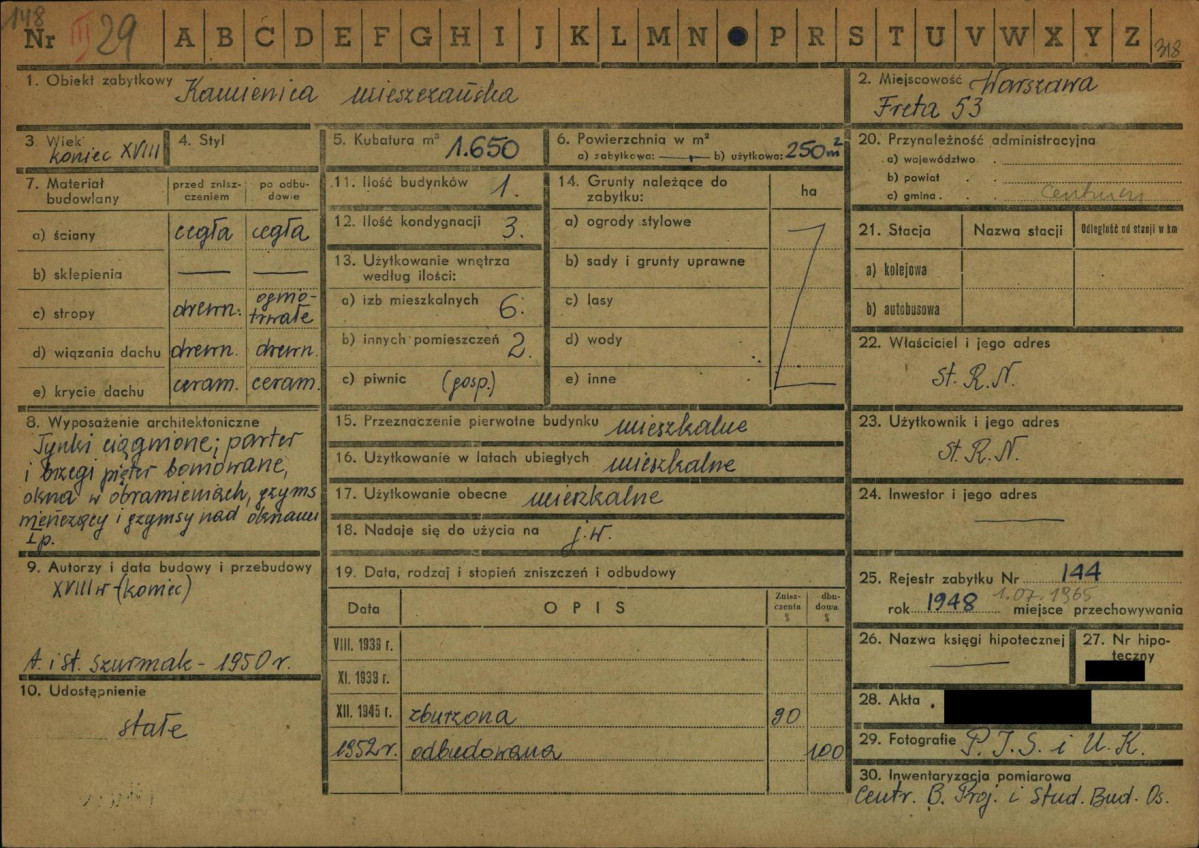 148
Nr III 29 A B C D E F G H I J K L M N P R S T U V W X Y Z 318
1. Obiekt zabytkowy Kamienica mieszczańska
2. Miejscowość Warszawa
Freta 53
3 Wiek koniec XVIII
4. Styl
5. Kubatura m³ 1.650
6. Powierzchnia w m²
a) zabytkowa: — b) użytkowa: 250 m²
7. Materiał budowlany
przed zniszczeniem
po odbudowie
a) ściany cegła cegła
b) sklepienia — —
c) stropy drewn. ogniotrwałe
d) wiązania dachu drewn. drewn.
e) krycie dachu ceram. ceram.
8. Wyposażenie architektoniczne
Tynki ciągnione; parter
i brzegi pięter boniowane,
okna w obramieniach, gzyms
wieńczący i gzymsy nad oknami
I p.
9. Autorzy i data budowy i przebudowy
XVIII w - (koniec)
A. i St. Szurmak - 1950 r.
10. Udostępnienie
stałe
11. Ilość budynków 1.
12. Ilość kondygnacji 3.
13. Użytkowanie wnętrza
według ilości:
a) izb mieszkalnych 6.
b) innych pomieszczeń 2.
c) piwnic (gosp.)
14. Grunty należące do
zabytku:
ha
a) ogrody stylowe
b) sady i grunty uprawne
c) lasy
d) wody
e) inne
15. Przeznaczenie pierwotne budynku mieszkalne
16. Użytkowanie w latach ubiegłych mieszkalne
17. Użytkowanie obecne mieszkalne
18. Nadaje się do użycia na j.w.
19. Data, rodzaj i stopień zniszczeń i odbudowy
Data OPIS Zniszczenia % dbudowa %
VIII. 1939 r.
XI. 1939 r.
XII. 1945 r. zburzona 90
1952 r. odbudowana 100
20. Przynależność administracyjna
a) województwo
b) powiat
c) gmina Centrum
21. Stacja Nazwa stacji Odległość od stacji w km
a) kolejowa
b) autobusowa
22. Właściciel i jego adres
St. R. N.
23. Użytkownik i jego adres
St. R. N.
24. Inwestor i jego adres
—
25. Rejestr zabytku Nr 144
1.07.1965
rok 1948 miejsce przechowywania
26. Nazwa księgi hipotecznej
—
27. Nr hipoteczny
28. Akta
29. Fotografie P. I. S. i U. K.
30. Inwentaryzacja pomiarowa
Centr. B. Proj. i Stud. Bud. Os.